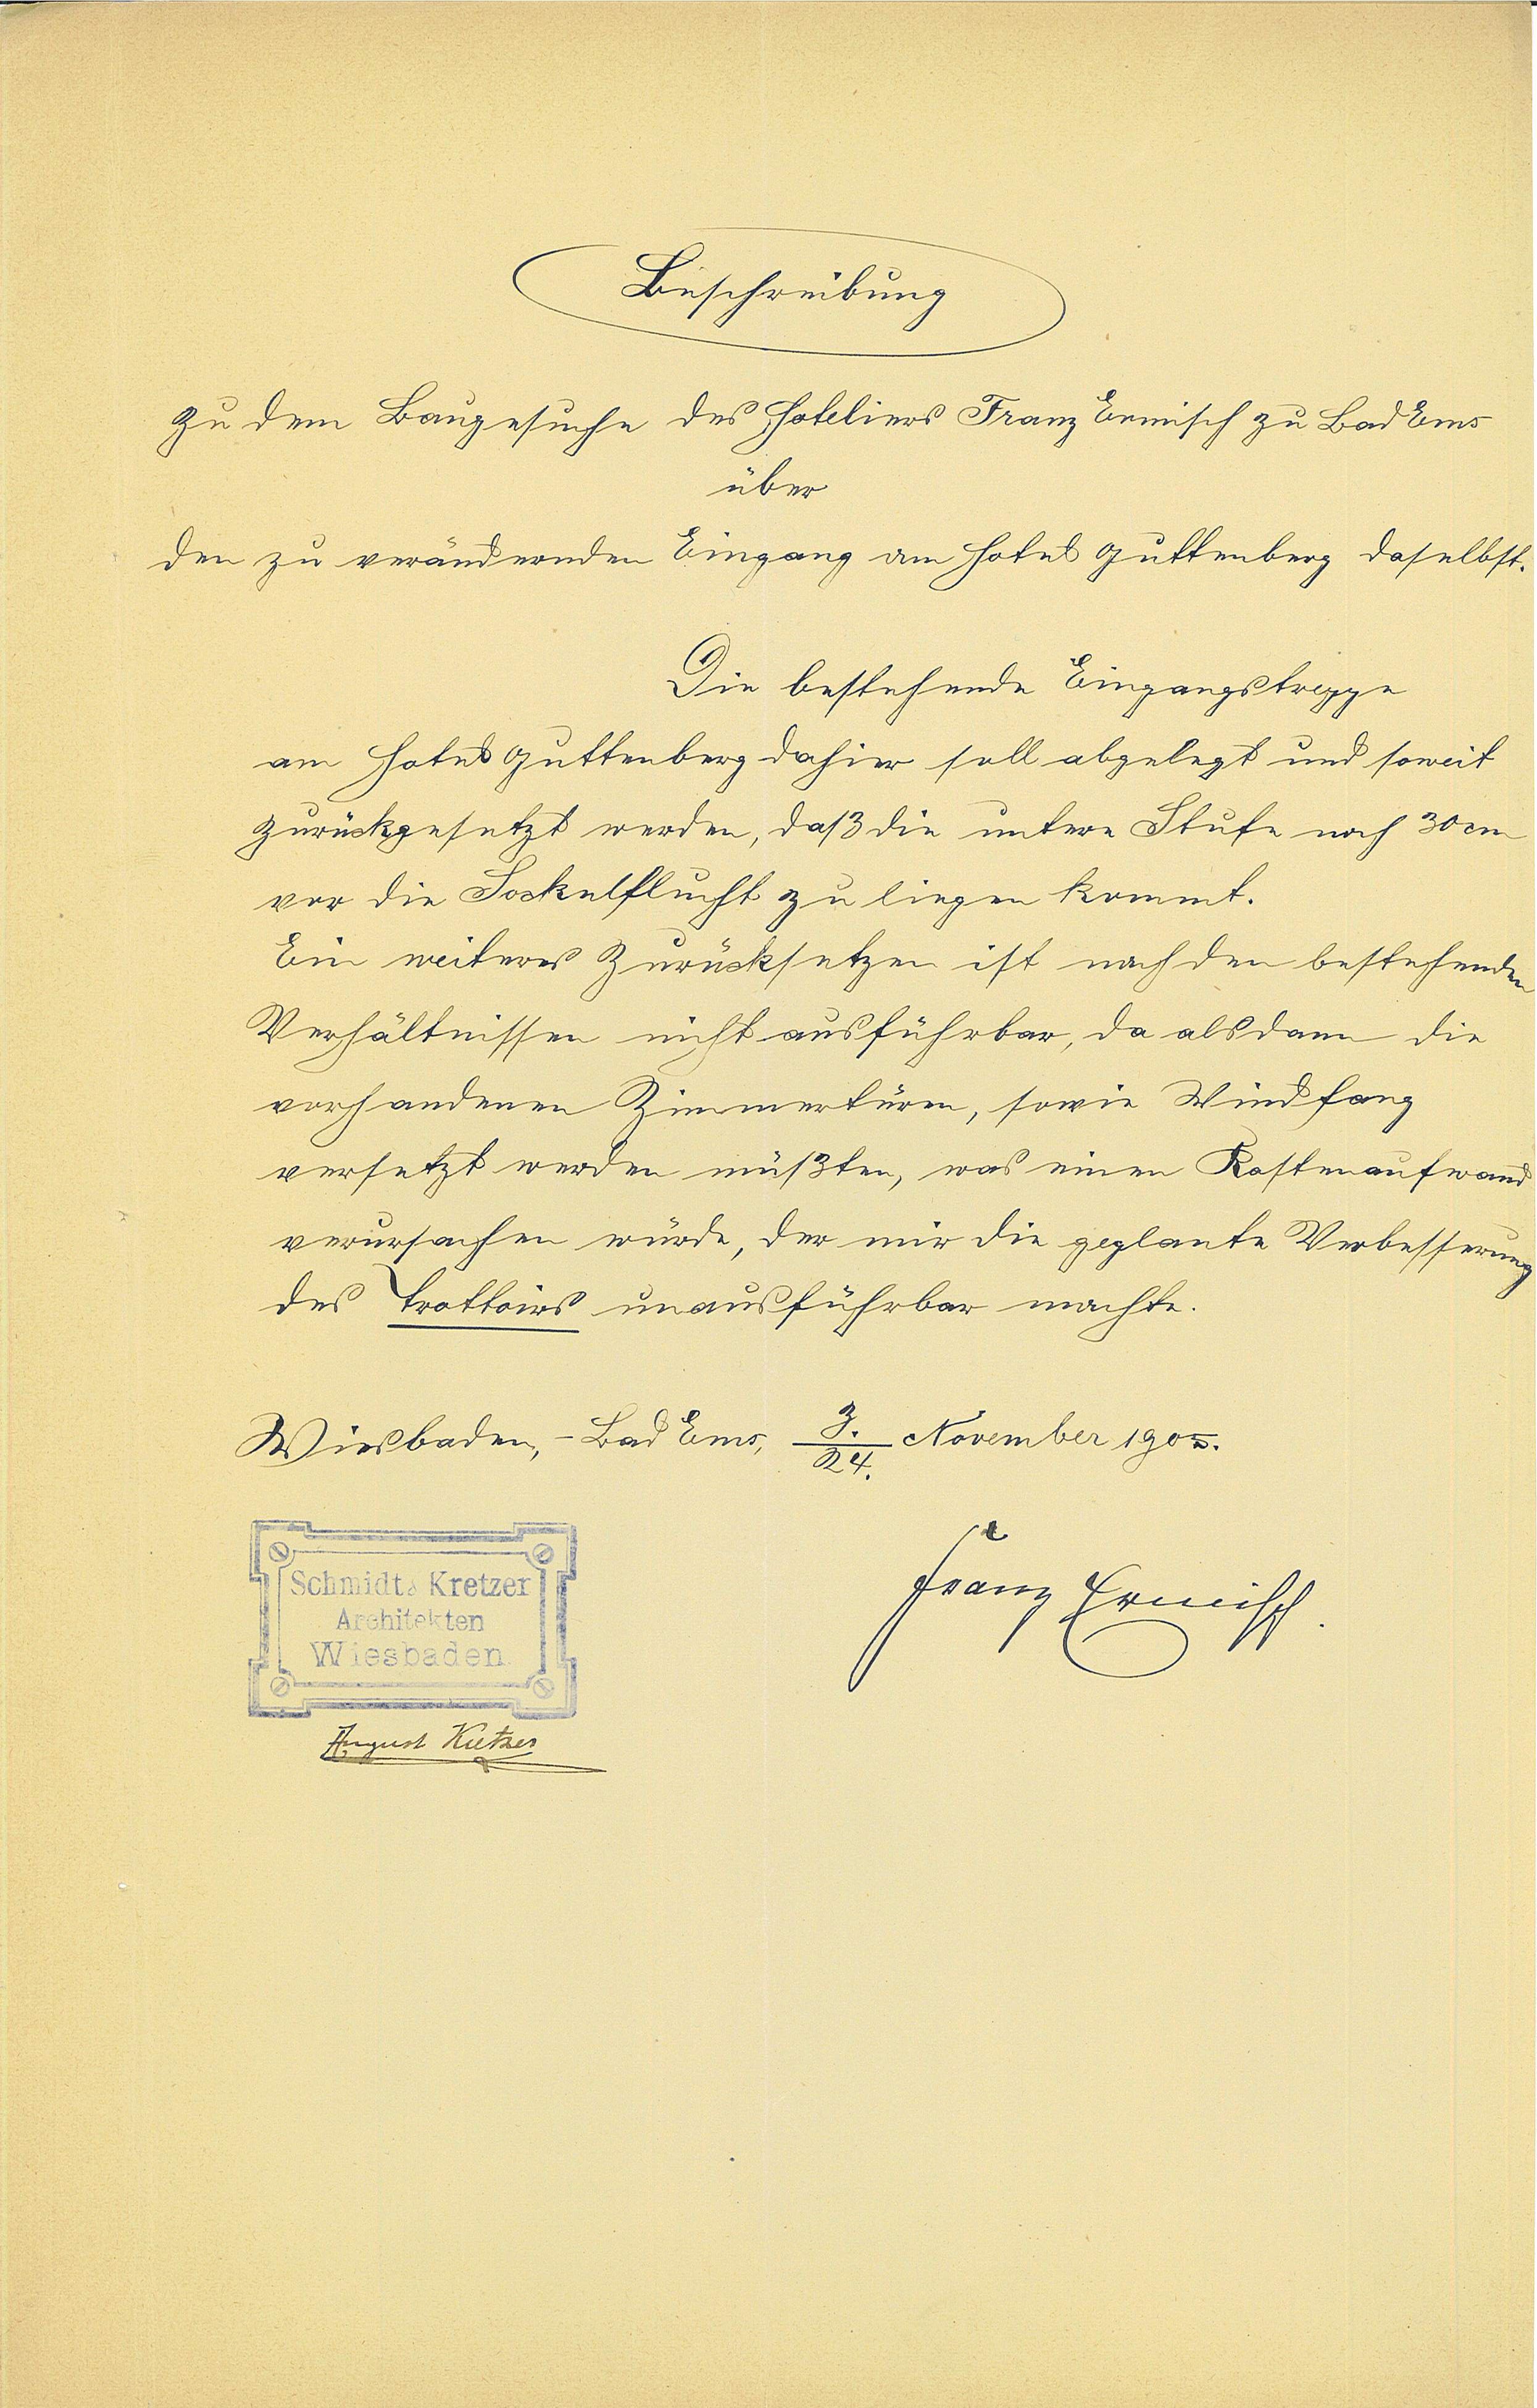 Beschreibung
zu dem Baugesuche des Hoteliers Franz Ermisch zu Bad Ems
über
den zu verändernden Eingang am Hotel Guttenberg daselbst.
Die bestehende Eingangstreppe
am Hotel Guttenberg dahier soll abgelegt und soweit
zurückgesetzt werden, daß die untere Stufe noch 30 cm
vor die Sockelflucht zu liegen kommt.
Ein weiteres Zurücksetzen ist nach den bestehenden
Verhältnissen nicht ausführbar, da alsdann die
vorhandenen Zimmertüren, sowie Windfang
versetzt werden müßten, was einen Kostenaufwand
verursachen würde, der mir die geplante Verbesserung
des Trottoirs unausführbar machte.
Wiesbaden, - Bad Ems, 3./24. November 1905.
Franz Ermisch.
Schmidt & Kretzer
Architekten
Wiesbaden
August Kretzer